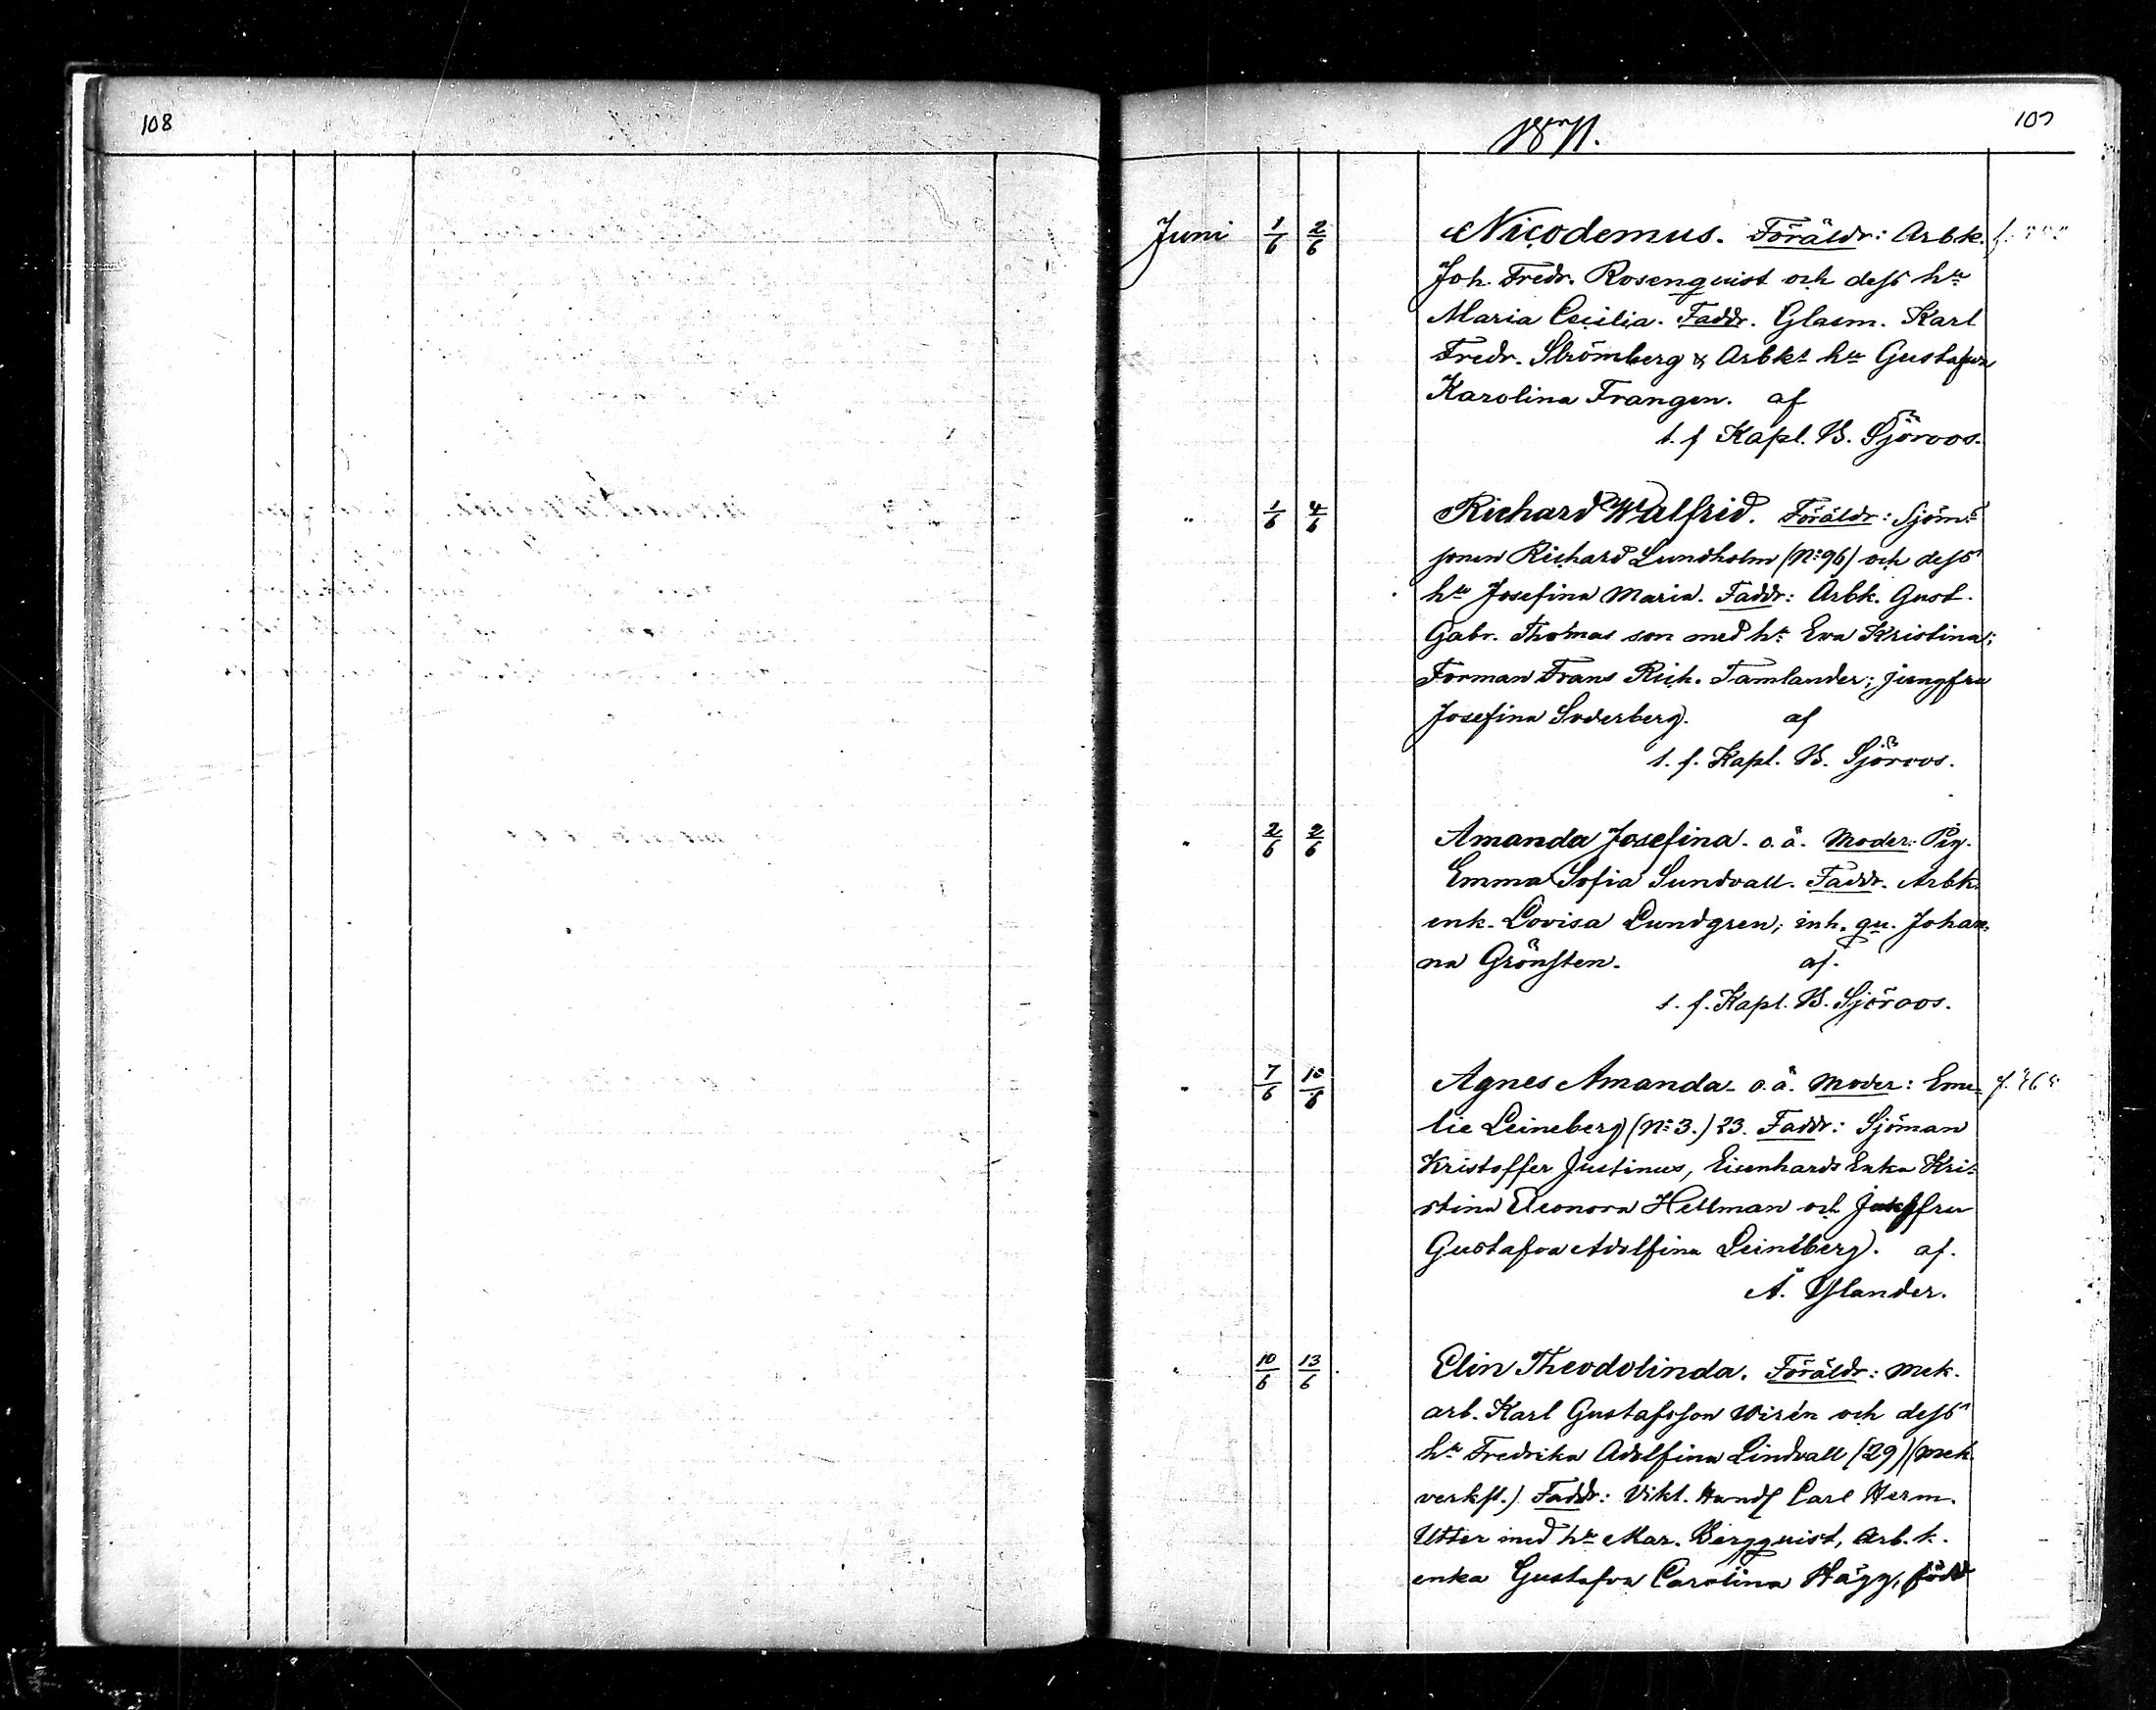 108
1871.
Juni 1/6 2/6 Nicodemus. Föräldr: Arbk.
Joh. Fredr. Rosenquist och dess hu
Maria Cecilia. Faddr. Glasm. Karl
Fredr. Strömberg & Arbks hu Gustafva
Karolina Frangen. af
t. f Kapl. B. Sjöroos.
" 1/6 4/6 Richard Walfrid. Föräldr: Sjöm:s
sonen Richard Lundholm (No 96) och dess
hu Josefina Maria. Faddr: Arbk. Gust.
Gabr. Thomas son med hu Eva Kristina;
Forman Frans Rich. Tamlander; jungfru
Josefina Soderberg. af
t. f. Kapl. B. Sjöroos.
" 2/6 2/6 Amanda Josefina. o. ä. Moder: Pig.
Emma Sofia Sundvall. Faddr. Arbk.
enk. Lovisa Lundgren; inh. qu. Johan-
na Grönsten. af.
t. f. Kapl. B. Sjöroos.
" 7/6 10/6 Agnes Amanda. o. ä. Moder: Eme-
lie Leineberg (No 3.) 23. Faddr: Sjöman
Kristoffer Justinus, Eisenhards Enka Kri-
stina Eleonora Hellman och Jungfru
Gustafva Adolfina Leineberg. af.
A. Ylander.
" 10/6 13/6 Elin Theodolinda. Föräldr: Mek.
arb. Karl Gustafsson Wirén och dess
hu Fredrika Adolfina Lindvall (29) (Mek.
verkst.) Faddr: Vikt. Handl Carl Herm.
Utter med hu Mar. Bergquist, Arb. k.
enka Gustafva Carolina Hägg, född